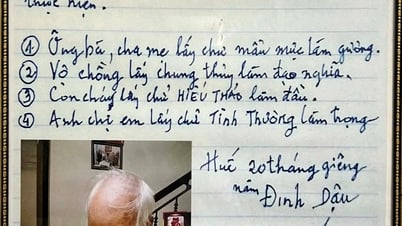 thực hiện.
① Ông bà, cha mẹ lấy chữ mẫu mực làm gương.
② Vợ chồng lấy chung thủy làm đạo nghĩa.
③ Con cháy lấy chữ HIẾU THẢO làm đầu.
④ Anh chị em lấy chữ Tình Thương làm trọng
Huế 20 tháng giêng
năm
ĐINH DẬU